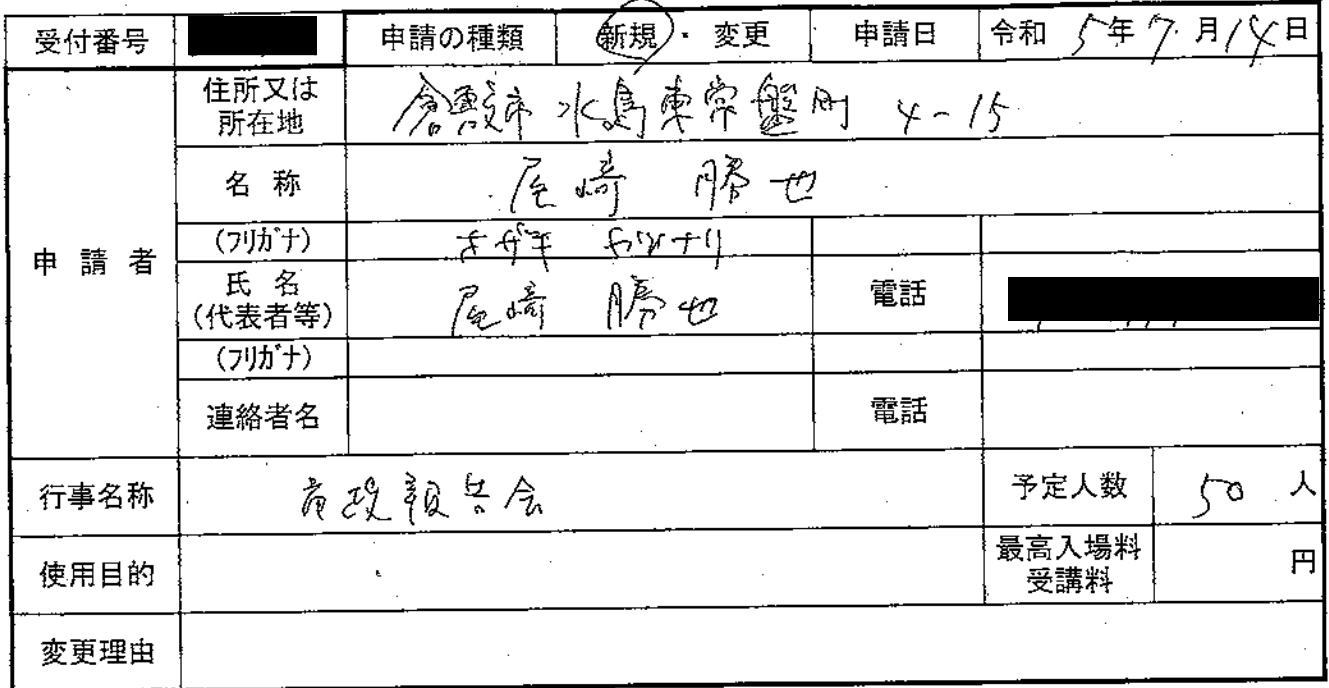 受付番号 申請の種類 新規・変更 申請日 令和 5年 7月 14日
申請者
住所又は所在地 倉敷市 水島東常盤町 4-15
名称 尾崎 勝也
(フリガナ) オザキ カツナリ
氏名(代表者等) 尾崎 勝也 電話
(フリガナ)
連絡者名 電話
行事名称 市政報告会 予定人数 50 人
使用目的 最高入場料受講料 円
変更理由